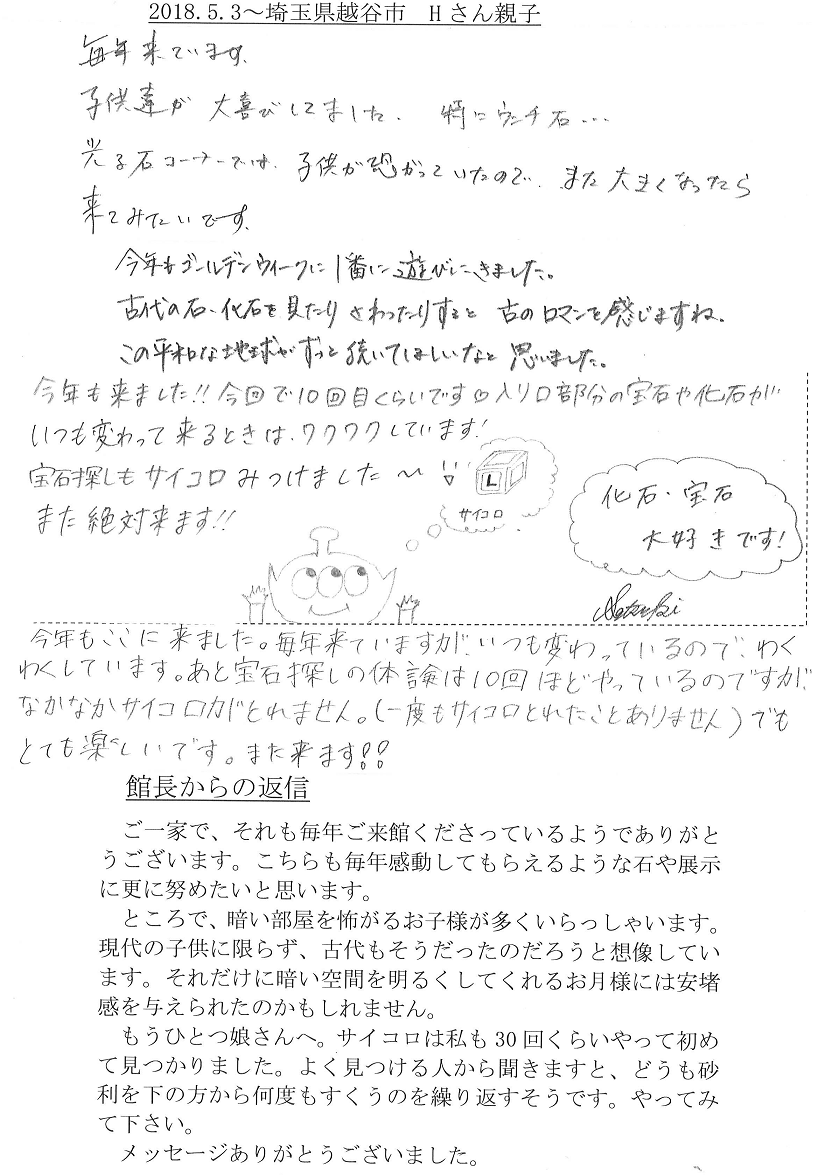 2018.5.3～埼玉県越谷市　Hさん親子
毎年来ています。
子供達が 大喜びしてました. 特にウンチ石...
光る石コーナーでは、子供が恐がっていたので、また大きくなったら
来てみたいです。
今年もゴールデンウィークに1番に遊びにきました。
古代の石・化石を見たりさわったりすると 古のロマンを感じますね.
この平和な地球がずっと続いてほしいなと思いました。
今年も来ました!!今回で10回目くらいです♡入り口部分の宝石や化石が
いつも変わって来るときは、ワクワクしています!
宝石探しもサイコロみつけました～
また絶対来ます!!
L
サイコロ
化石・宝石
大好きです!
Satsuki
今年もここに来ました。毎年来ていますが、いつも変わっているので、わく
わくしています。あと宝石探しの体験は10回ほどやっているのですが、
なかなかサイコロがとれません。(一度もサイコロとれたことありません)でも
とても楽しいです。また来ます!!
館長からの返信
　ご一家で、それも毎年ご来館くださっているようでありがと
うございます。こちらも毎年感動してもらえるような石や展示
に更に努めたいと思います。
　ところで、暗い部屋を怖がるお子様が多くいらっしゃいます。
現代の子供に限らず、古代もそうだったのだろうと想像してい
ます。それだけに暗い空間を明るくしてくれるお月様には安堵
感を与えられたのかもしれません。
　もうひとつ娘さんへ。サイコロは私も 30 回くらいやって初め
て見つかりました。よく見つける人から聞きますと、どうも砂
利を下の方から何度もすくうのを繰り返すそうです。やってみ
て下さい。
　メッセージありがとうございました。